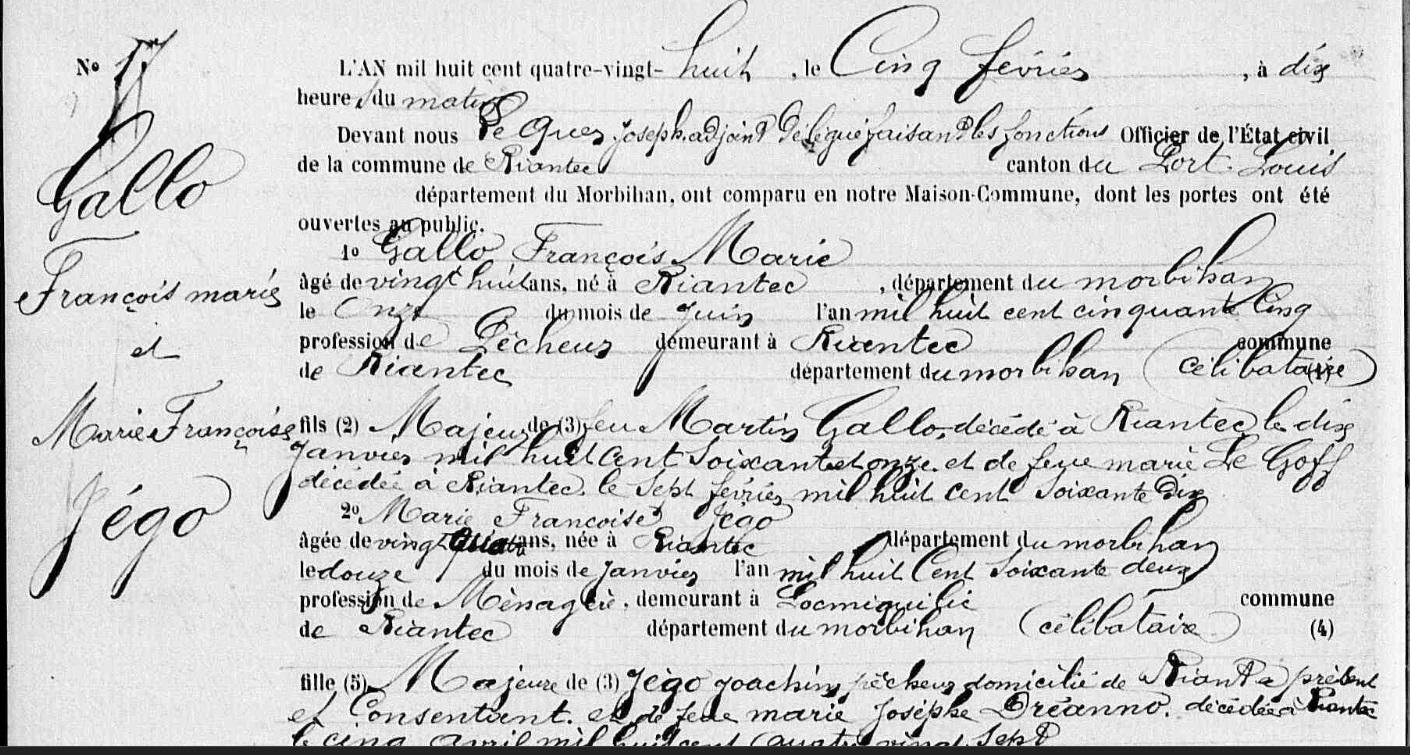 No 17
Gallo
François marie
et
Marie Françoise
Jégo
L'AN mil huit cent quatre-vingt- huit , le Cinq février , à dix
heures du matin
Devant nous Le Quer Joseph adjoint délégué faisant les fonctions Officier de l'État civil
de la commune de Riantec canton du Port-Louis
département du Morbihan, ont comparu en notre Maison-Commune, dont les portes ont été
ouvertes au public.
1o Gallo François Marie
âgé de vingt huit ans, né à Riantec , département du morbihan
le Onze du mois de Juin l'an mil huit cent cinquante Cinq
profession de Pêcheur demeurant à Riantec commune
de Riantec département du morbihan (célibataire)
fils (2) Majeur de (3) feu Martin Gallo, décédé à Riantec le dix
Janvier mil huit Cent Soixante et onze. et de feue marie Le Goff
décédée à Riantec le Sept février mil huit cent Soixante dix
2o Marie Françoise Jégo
âgée de vingt ans, née à Riantec département du morbihan
le douze du mois de Janvier l'an mil huit Cent Soixante deux
profession de Ménagère, demeurant à Locmiquélic commune
de Riantec département du morbihan (célibataire) (4)
fille (5) Majeure de (3) Jégo Joachim, pêcheur domicilié de Riantec présent
et Consentant. et de feue marie Josèphe Dréanno. décédée à Riantec
le cinq avril mil huit cent quatre vingt Sept